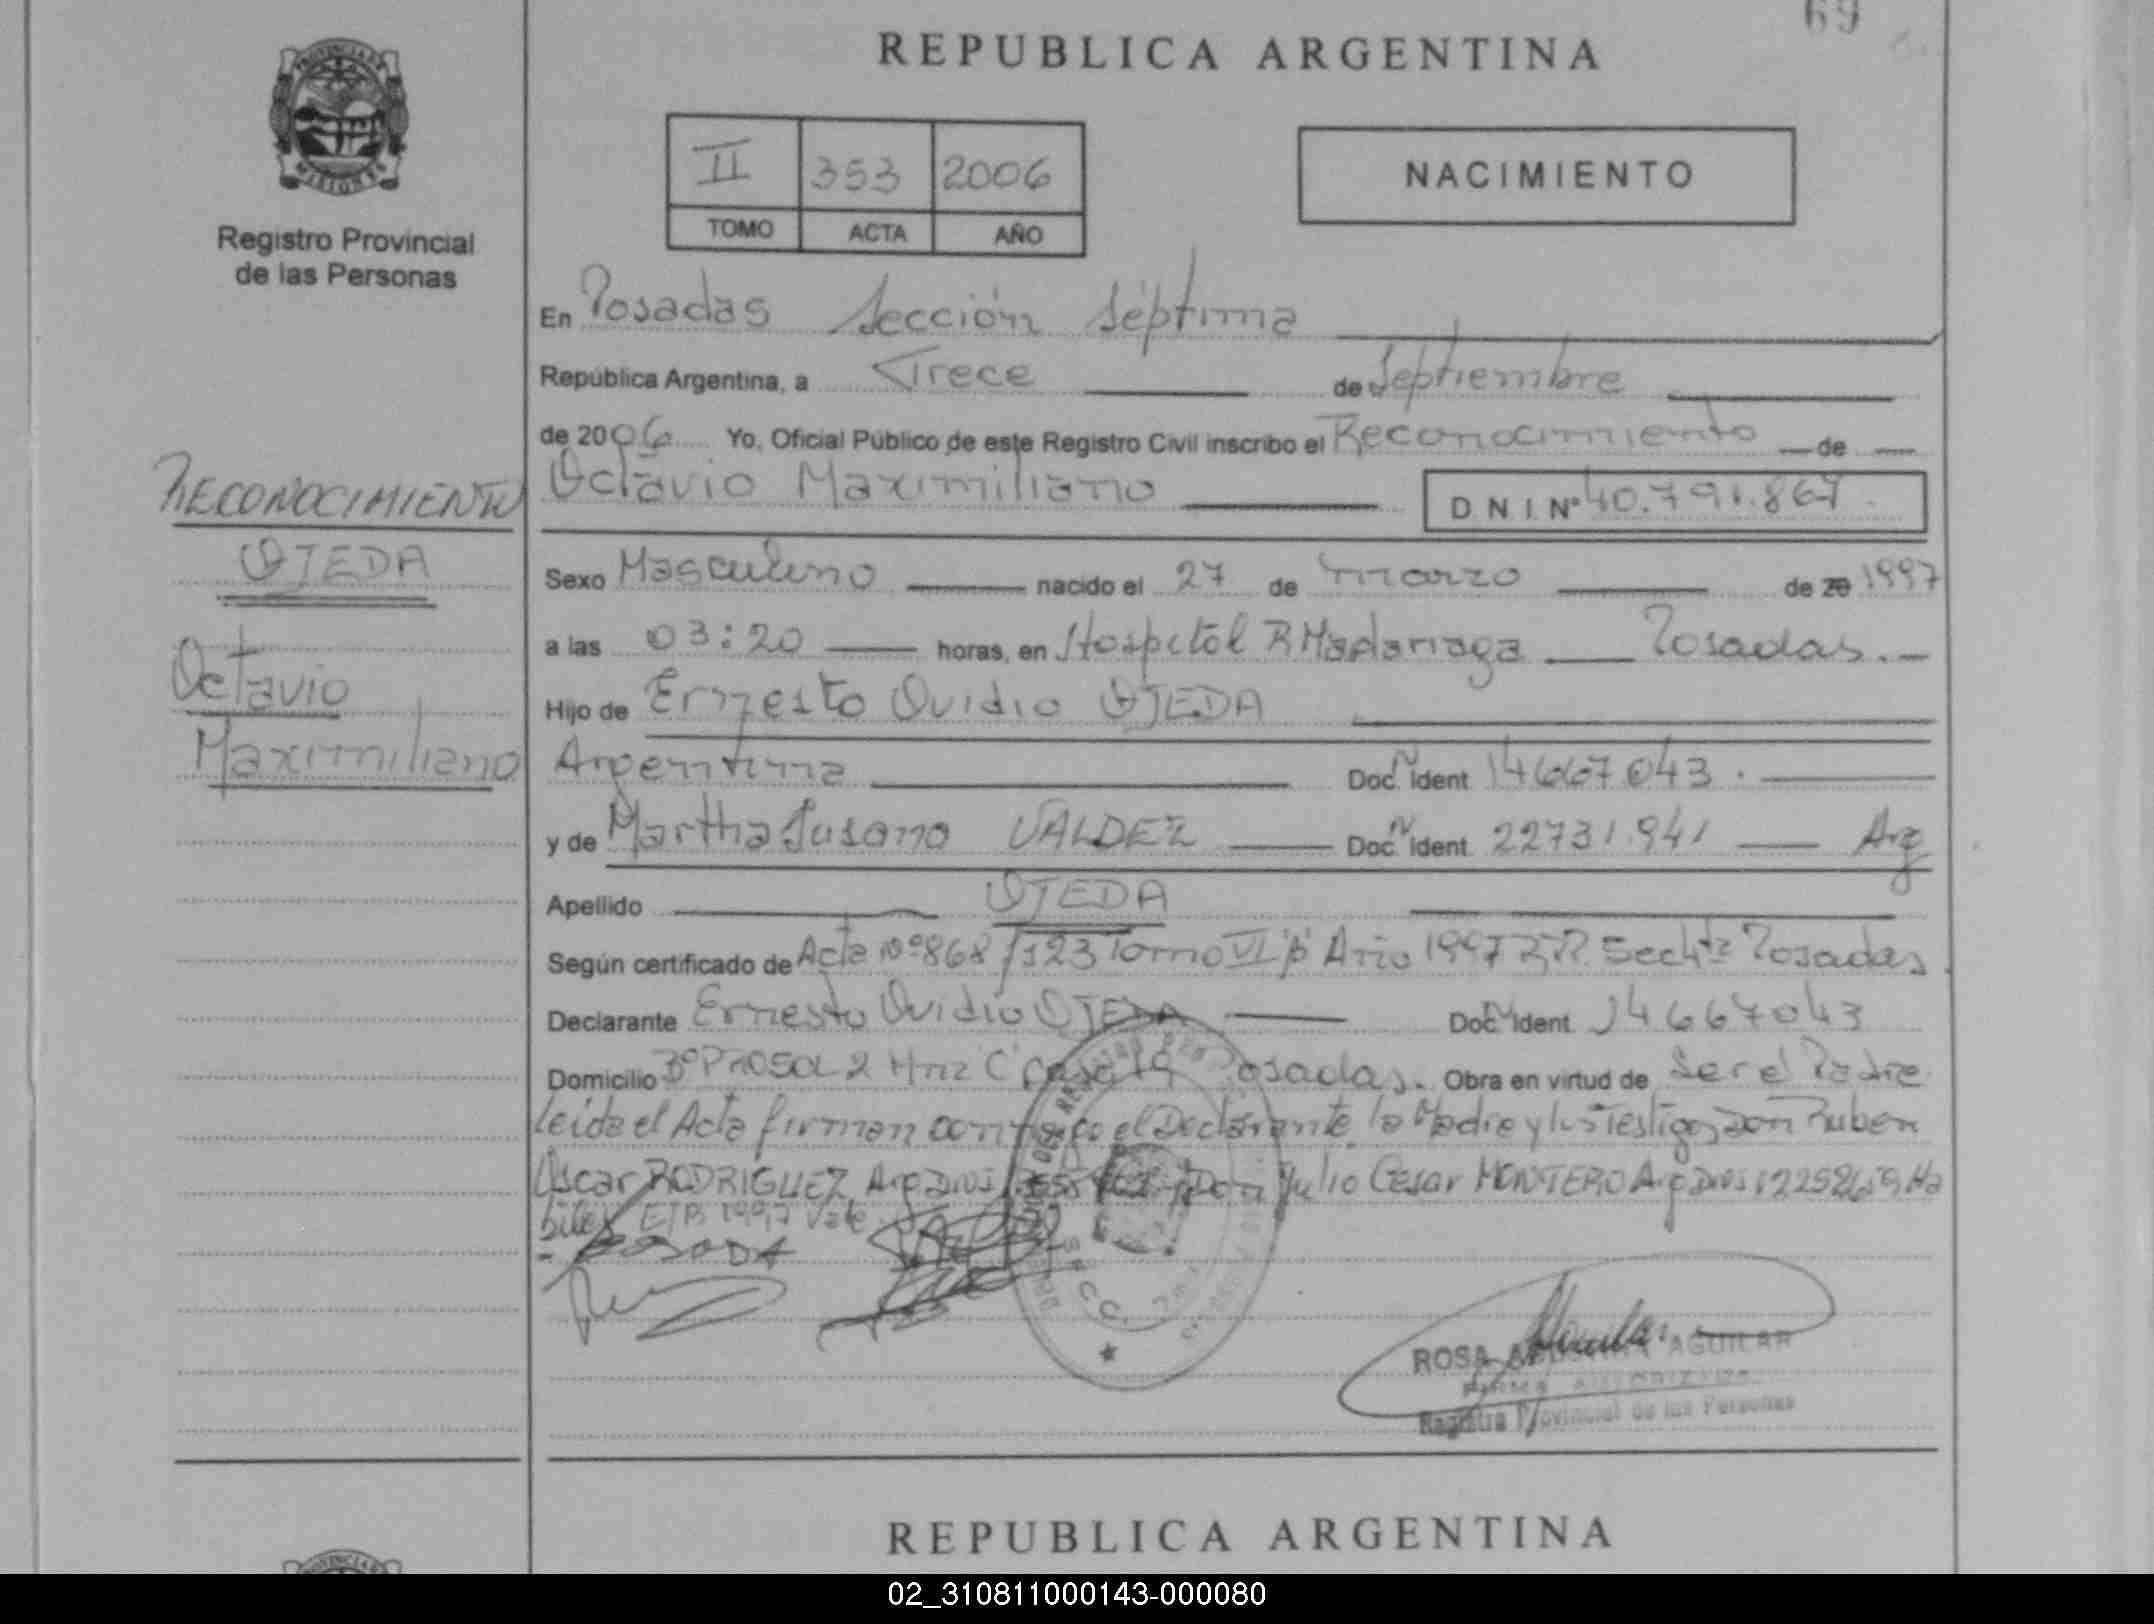 69
REPUBLICA ARGENTINA
PROVINCIA DE
MISIONES
Registro Provincial
de las Personas
II 353 2006
TOMO ACTA AÑO
NACIMIENTO
En Posadas Sección Séptima
República Argentina, a Trece de Septiembre
de 2006 Yo, Oficial Público de este Registro Civil inscribo el Reconocimiento de
Octavio Maximiliano
D.N.I. Nº 40.791.867
RECONOCIMIENTO
OJEDA
Octavio
Maximiliano
Sexo Masculino nacido el 27 de marzo de 20 1997
a las 03:20 horas, en Hospital R Madariaga Posadas.
Hijo de Ernesto Ovidio OJEDA
Argentina Doc. Ident 14667043.
y de Martha Susana VALDEZ Doc. Ident. 22731.941 Arg
Apellido OJEDA
Según certificado de Acta Nº 868 /123 Tomo VI Año 1997 Posadas
Declarante Ernesto Ovidio OJEDA Doc. Ident 14667043
Domicilio 2 Mz C Casa Posadas. Obra en virtud de Ser el Padre
leida el Acta firman conmigo el Declarante la Madre y los Testigos Don Ruben
Oscar RODRIGUEZ Arg Don Julio Cesar MONTERO Arg Ha
biles 1997 Vale
ROSA AGUILAR
Registro Provincial de las Personas
REPUBLICA ARGENTINA
02_310811000143-000080